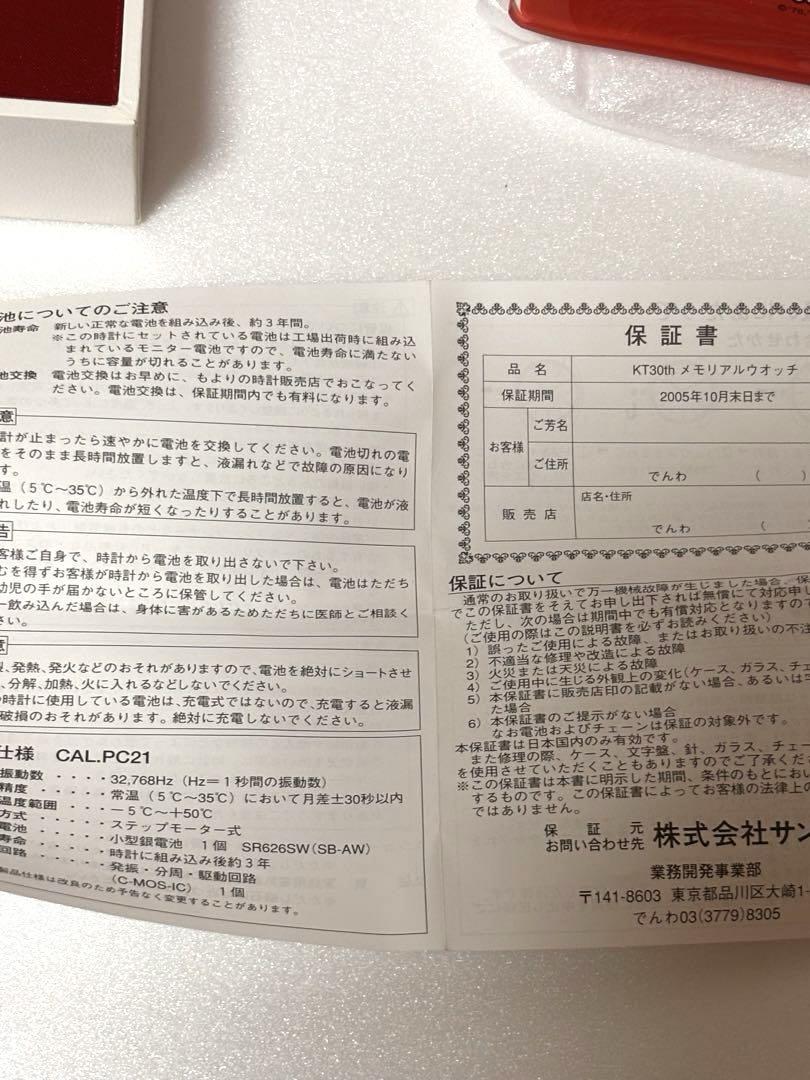 ©'76,
池についてのご注意
池寿命 新しい正常な電池を組み込み後、約3年間。
※この時計にセットされている電池は工場出荷時に組み込
まれているモニター電池ですので、電池寿命に満たない
うちに容量が切れることがあります。
池交換 電池交換はお早めに、もよりの時計販売店でおこなってく
ださい。電池交換は、保証期間内でも有料になります。
意
計が止まったら速やかに電池を交換してください。電池切れの電
をそのまま長時間放置しますと、液漏れなどで故障の原因になり
す。
温(5℃〜35℃)から外れた温度下で長時間放置すると、電池が液
れしたり、電池寿命が短くなったりすることがあります。
告
客様ご自身で、時計から電池を取り出さないで下さい。
むを得ずお客様が時計から電池を取り出した場合は、電池はただち
幼児の手が届かないところに保管してください。
一飲み込んだ場合は、身体に害があるためただちに医師とご相談く
さい。
意
、発熱、発火などのおそれがありますので、電池を絶対にショートさせ
、分解、加熱、火に入れるなどしないでください。
時計に使用している電池は、充電式ではないので、充電すると液漏
破損のおそれがあります。絶対に充電しないでください。
仕様 CAL.PC21
振動数 ・・・・32,768Hz(Hz=1秒間の振動数)
精度 ・・・・・常温(5℃〜35℃)において月差±30秒以内
温度範囲 ・・・・−5℃〜+50℃
方式 ・・・・・ステップモーター式
電池 ・・・・・小型銀電池 1個 SR626SW(SB-AW)
寿命 ・・・・・時計に組み込み後約3年
回路 ・・・・・発振・分周・駆動回路
(C-MOS-IC) 1個
製品仕様は改良のため予告なく変更することがあります。
保証書
品名 KT30th メモリアルウオッチ
保証期間 2005年10月末日まで
お客様 ご芳名
ご住所 でんわ ( )
販売店 店名・住所
でんわ (
保証について
通常のお取り扱いで万一機械故障が生じました場合、保
でこの保証書をそえてお申し出下されば無償にて対応申し
ただし、次の場合は期間中でも有償対応となりますので
(ご使用の際はこの説明書を必ずお読みください)
1)誤ったご使用による故障、またはお取り扱いの不注
2)不適当な修理や改造による故障
3)火災または天災による故障
4)ご使用中に生じる外観上の変化(ケース、ガラス、チェ
5)本保証書に販売店印の記載がない場合、あるいは字
た場合
6)本保証書のご提示がない場合
なお電池およびチェーンは保証の対象外です。
本保証書は日本国内のみ有効です。
また修理の際、ケース、文字盤、針、ガラス、チェー
を使用させていただくこともありますのでご了承くださ
※この保証書は本書に明示した期間、条件のもとにおい
するものです。この保証書によってお客様の法律上の
ではありません。
保証元
お問い合わせ先 株式会社サン
業務開発事業部
〒141-8603 東京都品川区大崎1-
でんわ03(3779)8305